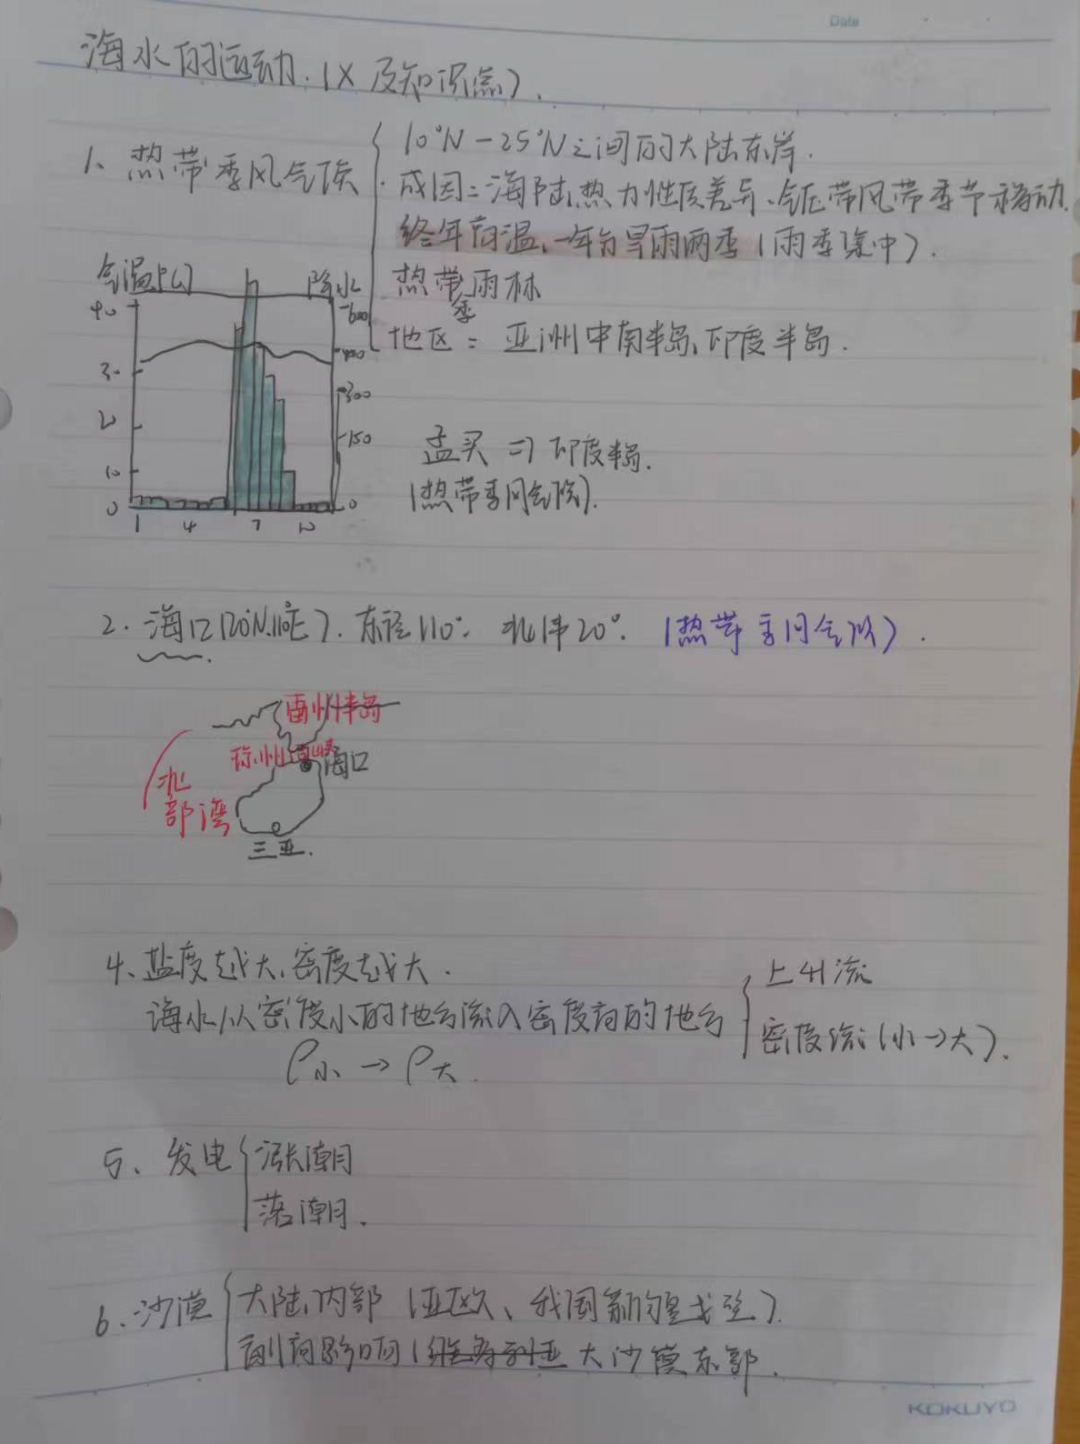 Date
海水的运动.(X 及知识点).
1、热带季风气候
10°N-25°N之间的大陆东岸.
成因:海陆热力性质差异、气压带风带季节移动.
终年高温、一年分旱雨两季(雨季集中).
热带雨林
季
地区:亚洲中南半岛、印度半岛.
气温(℃) 降水
40 600
30 400
300
20 150
10
0 0
1 4 7 10
孟买⇒印度半岛.
(热带季风气候).
2.海口(20°N.110°E).东经110°.北纬20°.(热带季风气候).
雷州半岛
琼州海峡 海口
北部湾
三亚.
4、盐度越大、密度越大.
海水从密度小的地方流入密度高的地方
上升流
密度流(小→大).
ρ小→ρ大.
5、发电
涨潮
落潮.
6、沙漠
大陆内部(亚欧、我国新疆戈壁).
副高影响(大沙漠东部.
KOKUYO